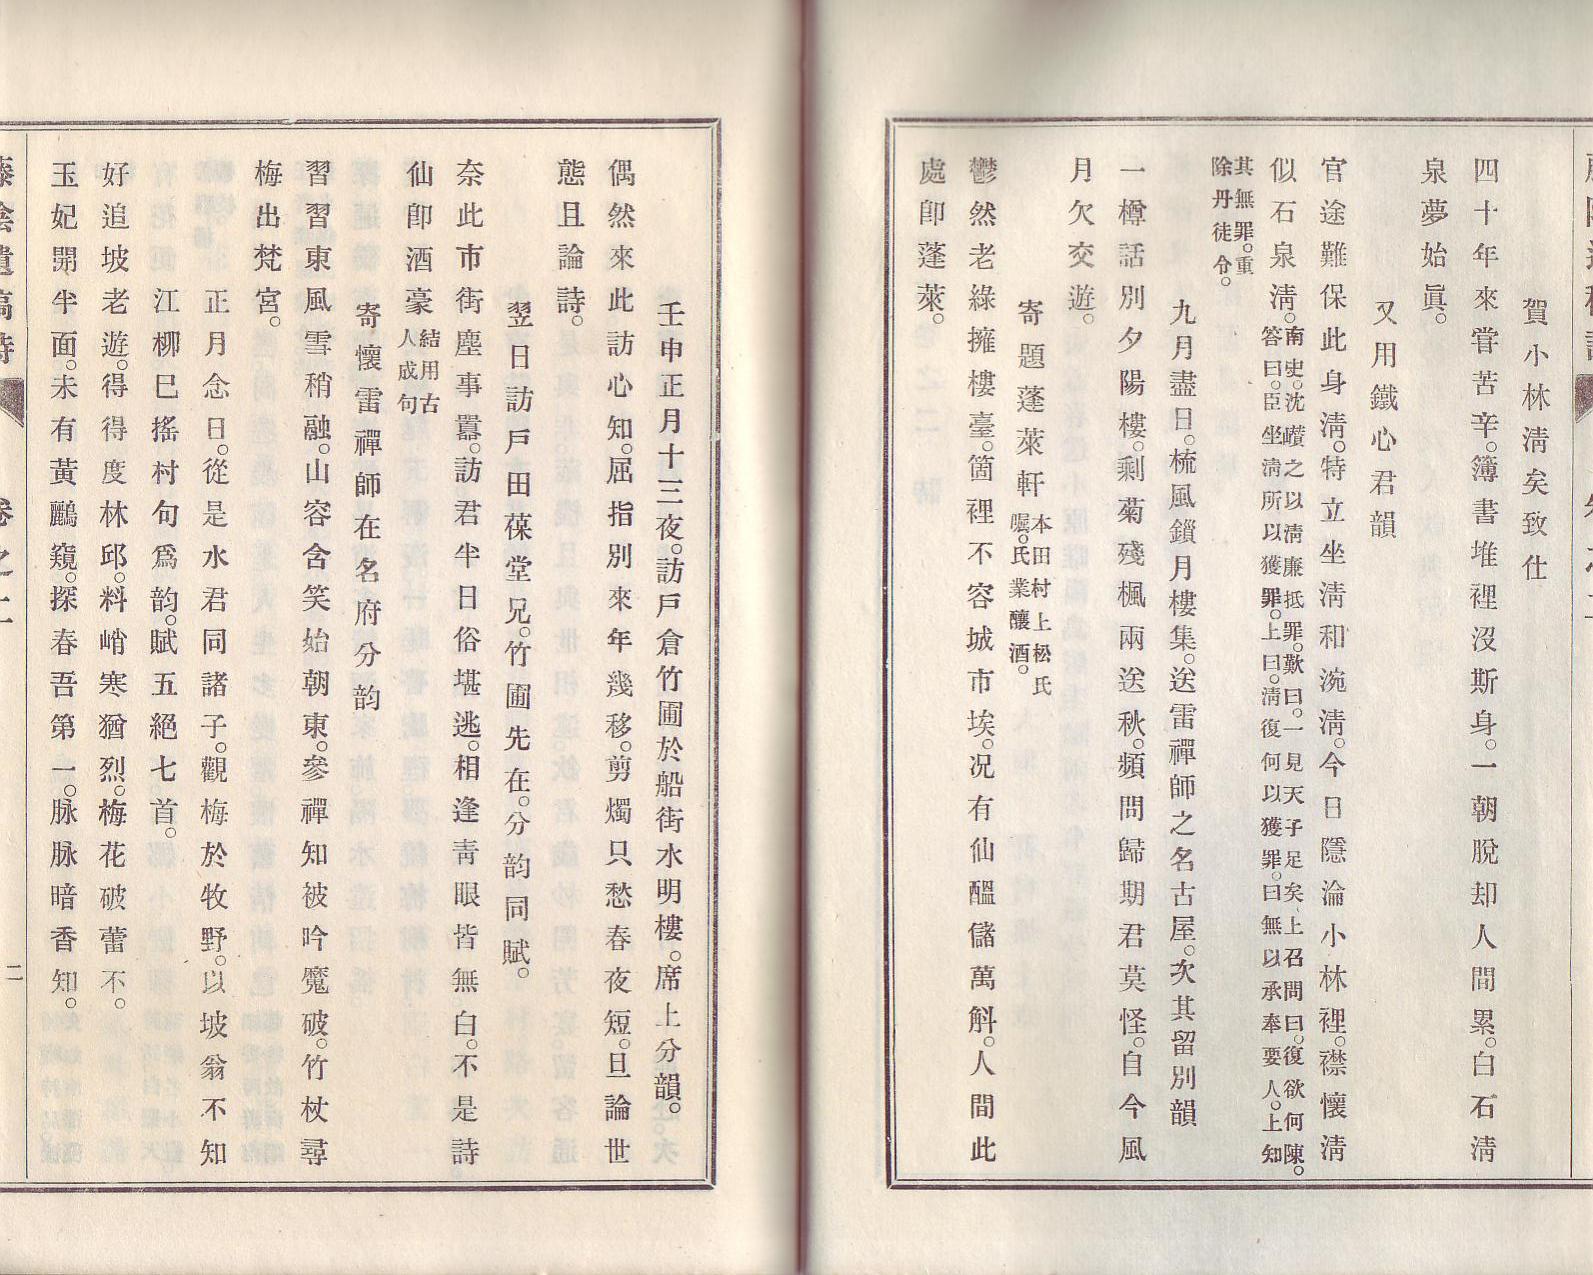 賀小林淸矣致仕
四十年來嘗苦辛。簿書堆裡沒斯身。一朝脫却人間累。白石淸
泉夢始眞。
又用鐵心君韻
官途難保此身淸。特立坐淸和涴淸。今日隱淪小林裡。襟懷淸
似石泉淸。南史。沈巑之以淸廉抵罪。歎曰。一見天子足矣、上召問曰。復欲何陳。
答曰。臣坐淸所以獲罪。上曰。淸復何以獲罪。曰無以承奉要人。上知
其無罪。重
除丹徒令。
九月盡日。梳風鎖月樓集。送雷禪師之名古屋。次其留別韻
一樽話別夕陽樓。剩菊殘楓兩送秋。頻問歸期君莫怪。自今風
月欠交遊。
寄題蓬萊軒本田村上松氏
囑。氏業釀酒。
鬱然老綠擁樓臺。箇裡不容城市埃。況有仙醞儲萬斛。人間此
處卽蓬萊。
壬申正月十三夜。訪戶倉竹圃於船街水明樓。席上分韻。
偶然來此訪心知。屈指別來年幾移。剪燭只愁春夜短。且論世
態且論詩。
翌日訪戶田葆堂兄。竹圃先在。分韵同賦。
奈此市街塵事囂。訪君半日俗堪逃。相逢靑眼皆無白。不是詩
仙卽酒豪結用古
人成句
寄懷雷禪師在名府分韵
習習東風雪稍融。山容含笑始朝東。參禪知被吟魔破。竹杖尋
梅出梵宮。
正月念日。從是水君同諸子。觀梅於牧野。以坡翁不知
江柳巳搖村句爲韵。賦五絕七首。
好追坡老遊。得得度林邱。料峭寒猶烈。梅花破蕾不。
玉妃開半面。未有黃鸝窺。探春吾第一。脉脉暗香知。
卷之二
二